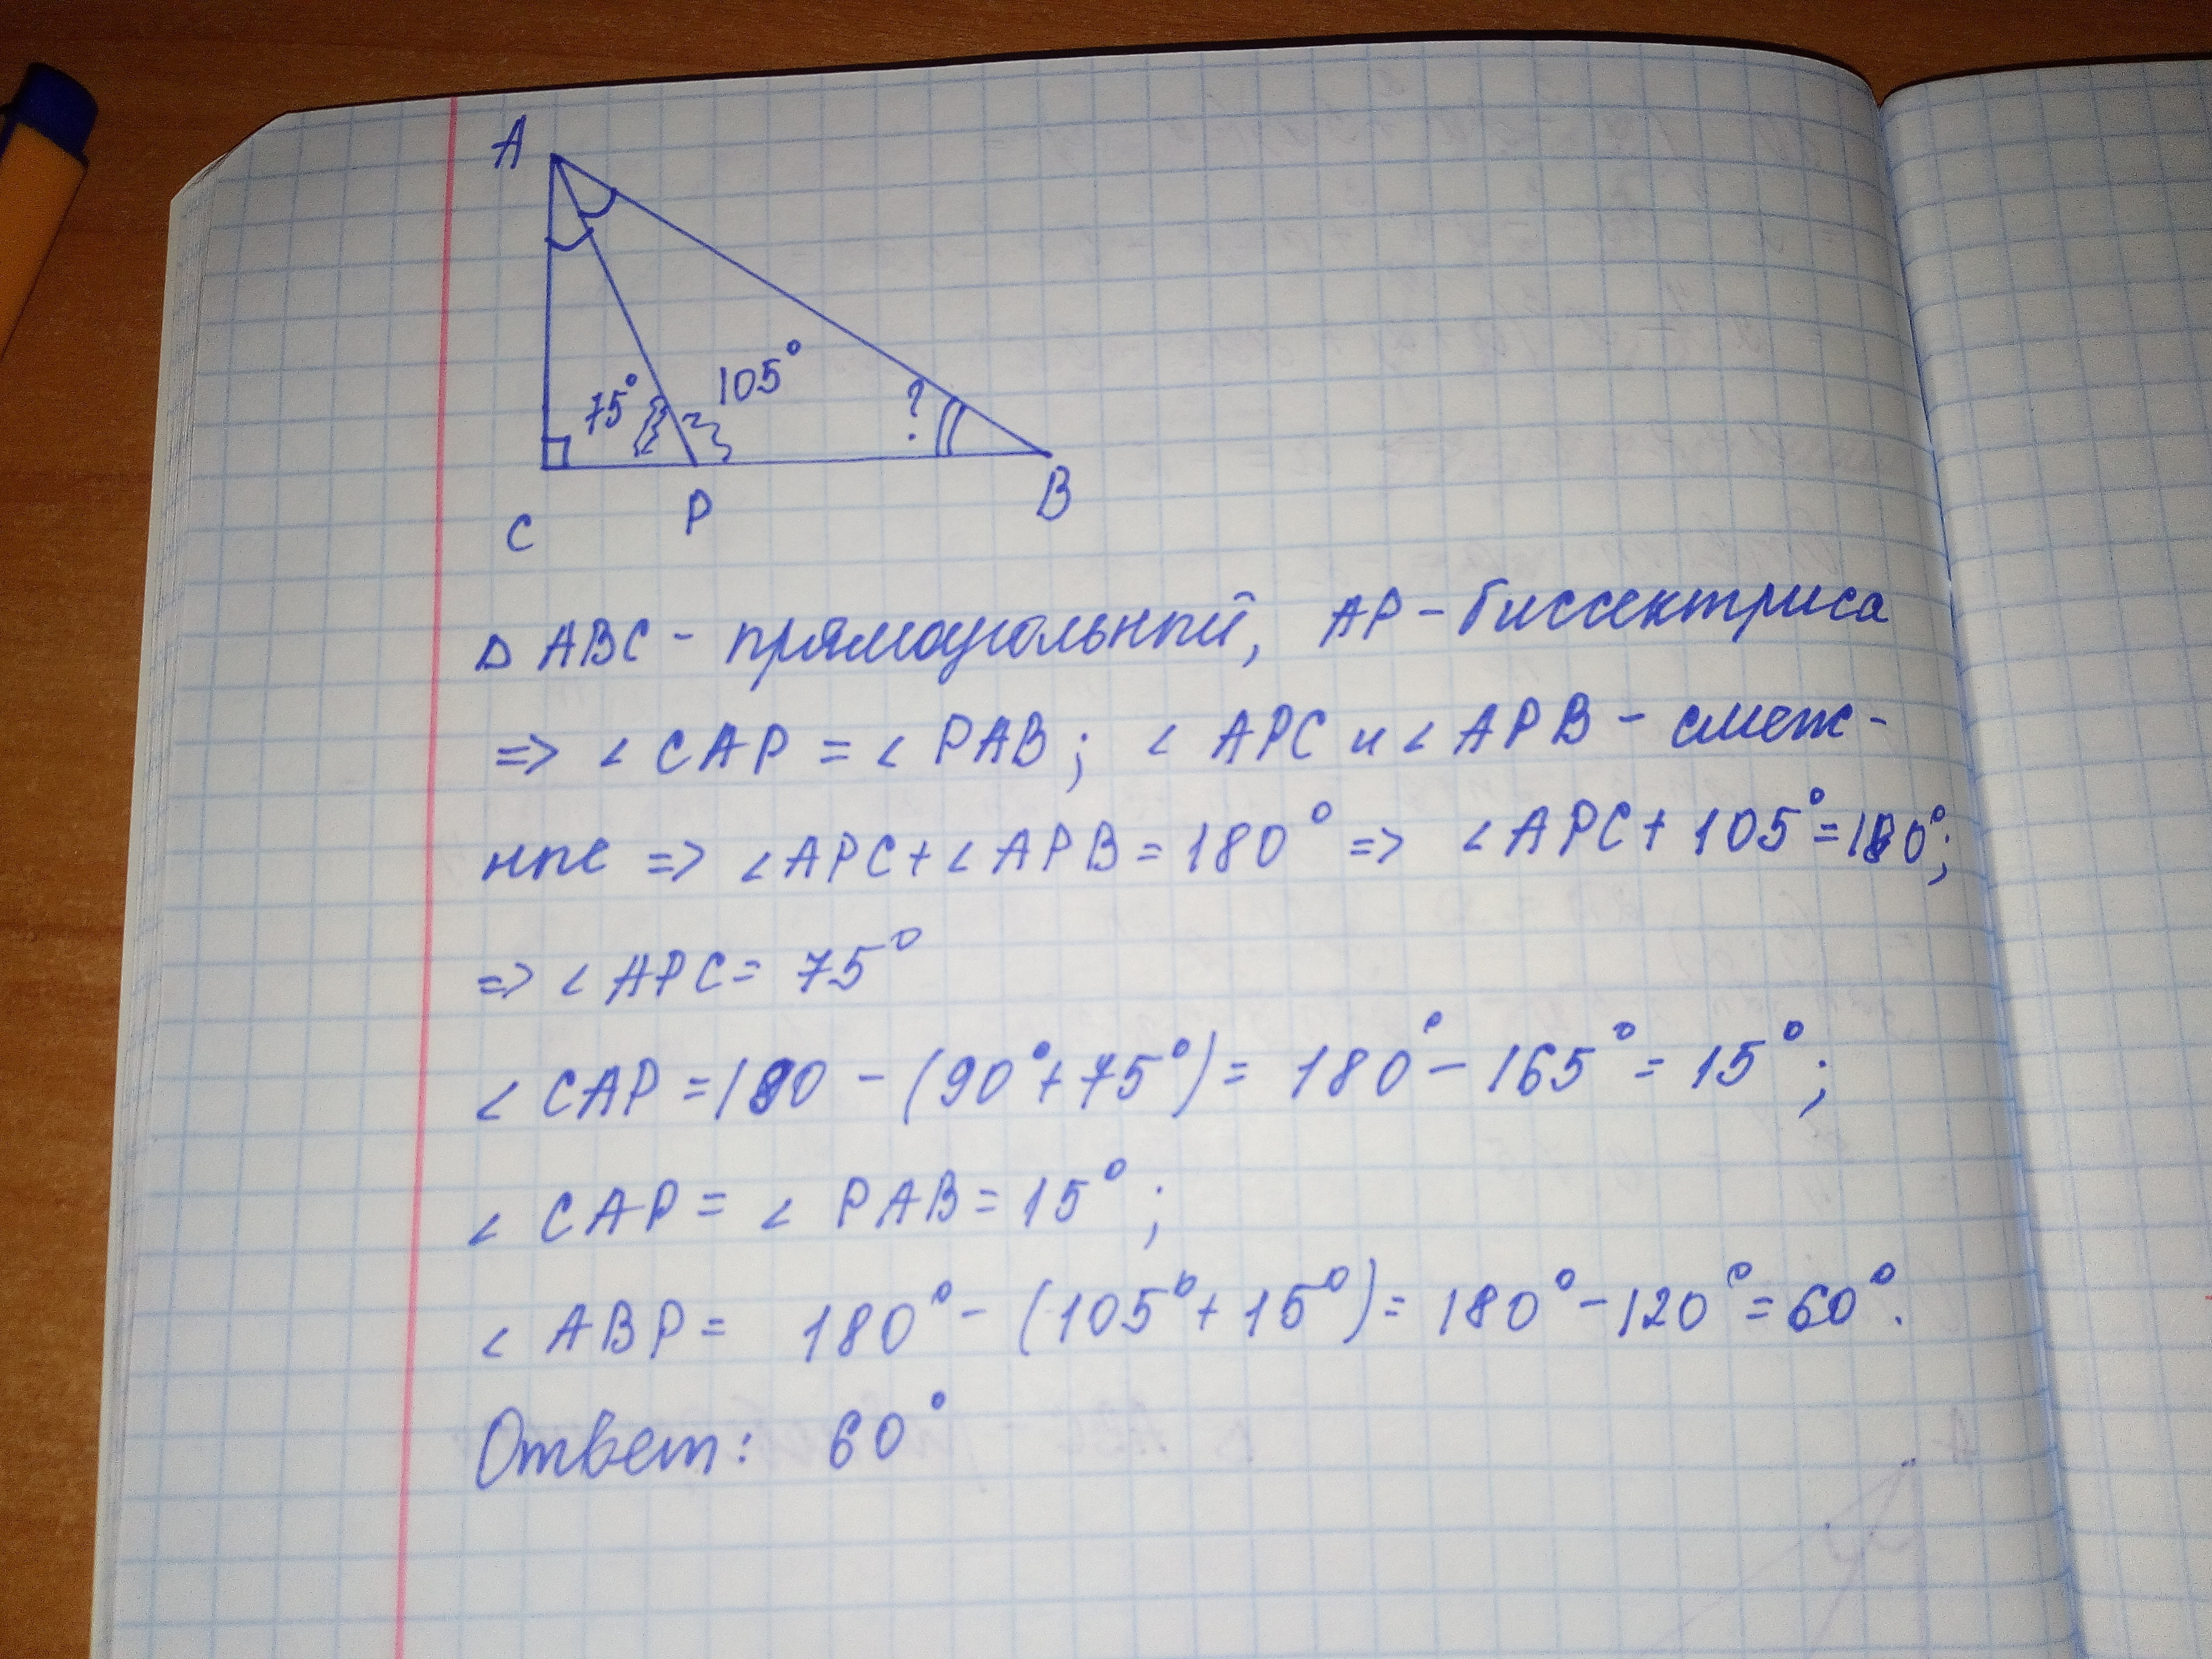 A
75° 105° ?
C P B
△ ABC - прямоугольный, AP - биссектриса
=> ∠ CAP = ∠ PAB; ∠ APC и ∠ APB - смеж-
ные => ∠APC + ∠APB = 180° => ∠APC + 105° = 180°;
=> ∠APC = 75°
∠ CAP = 180 - (90° + 75°) = 180° - 165° = 15°;
∠ CAP = ∠ PAB = 15°;
∠ ABP = 180° - (105° + 15°) = 180° - 120° = 60°.
Ответ: 60°